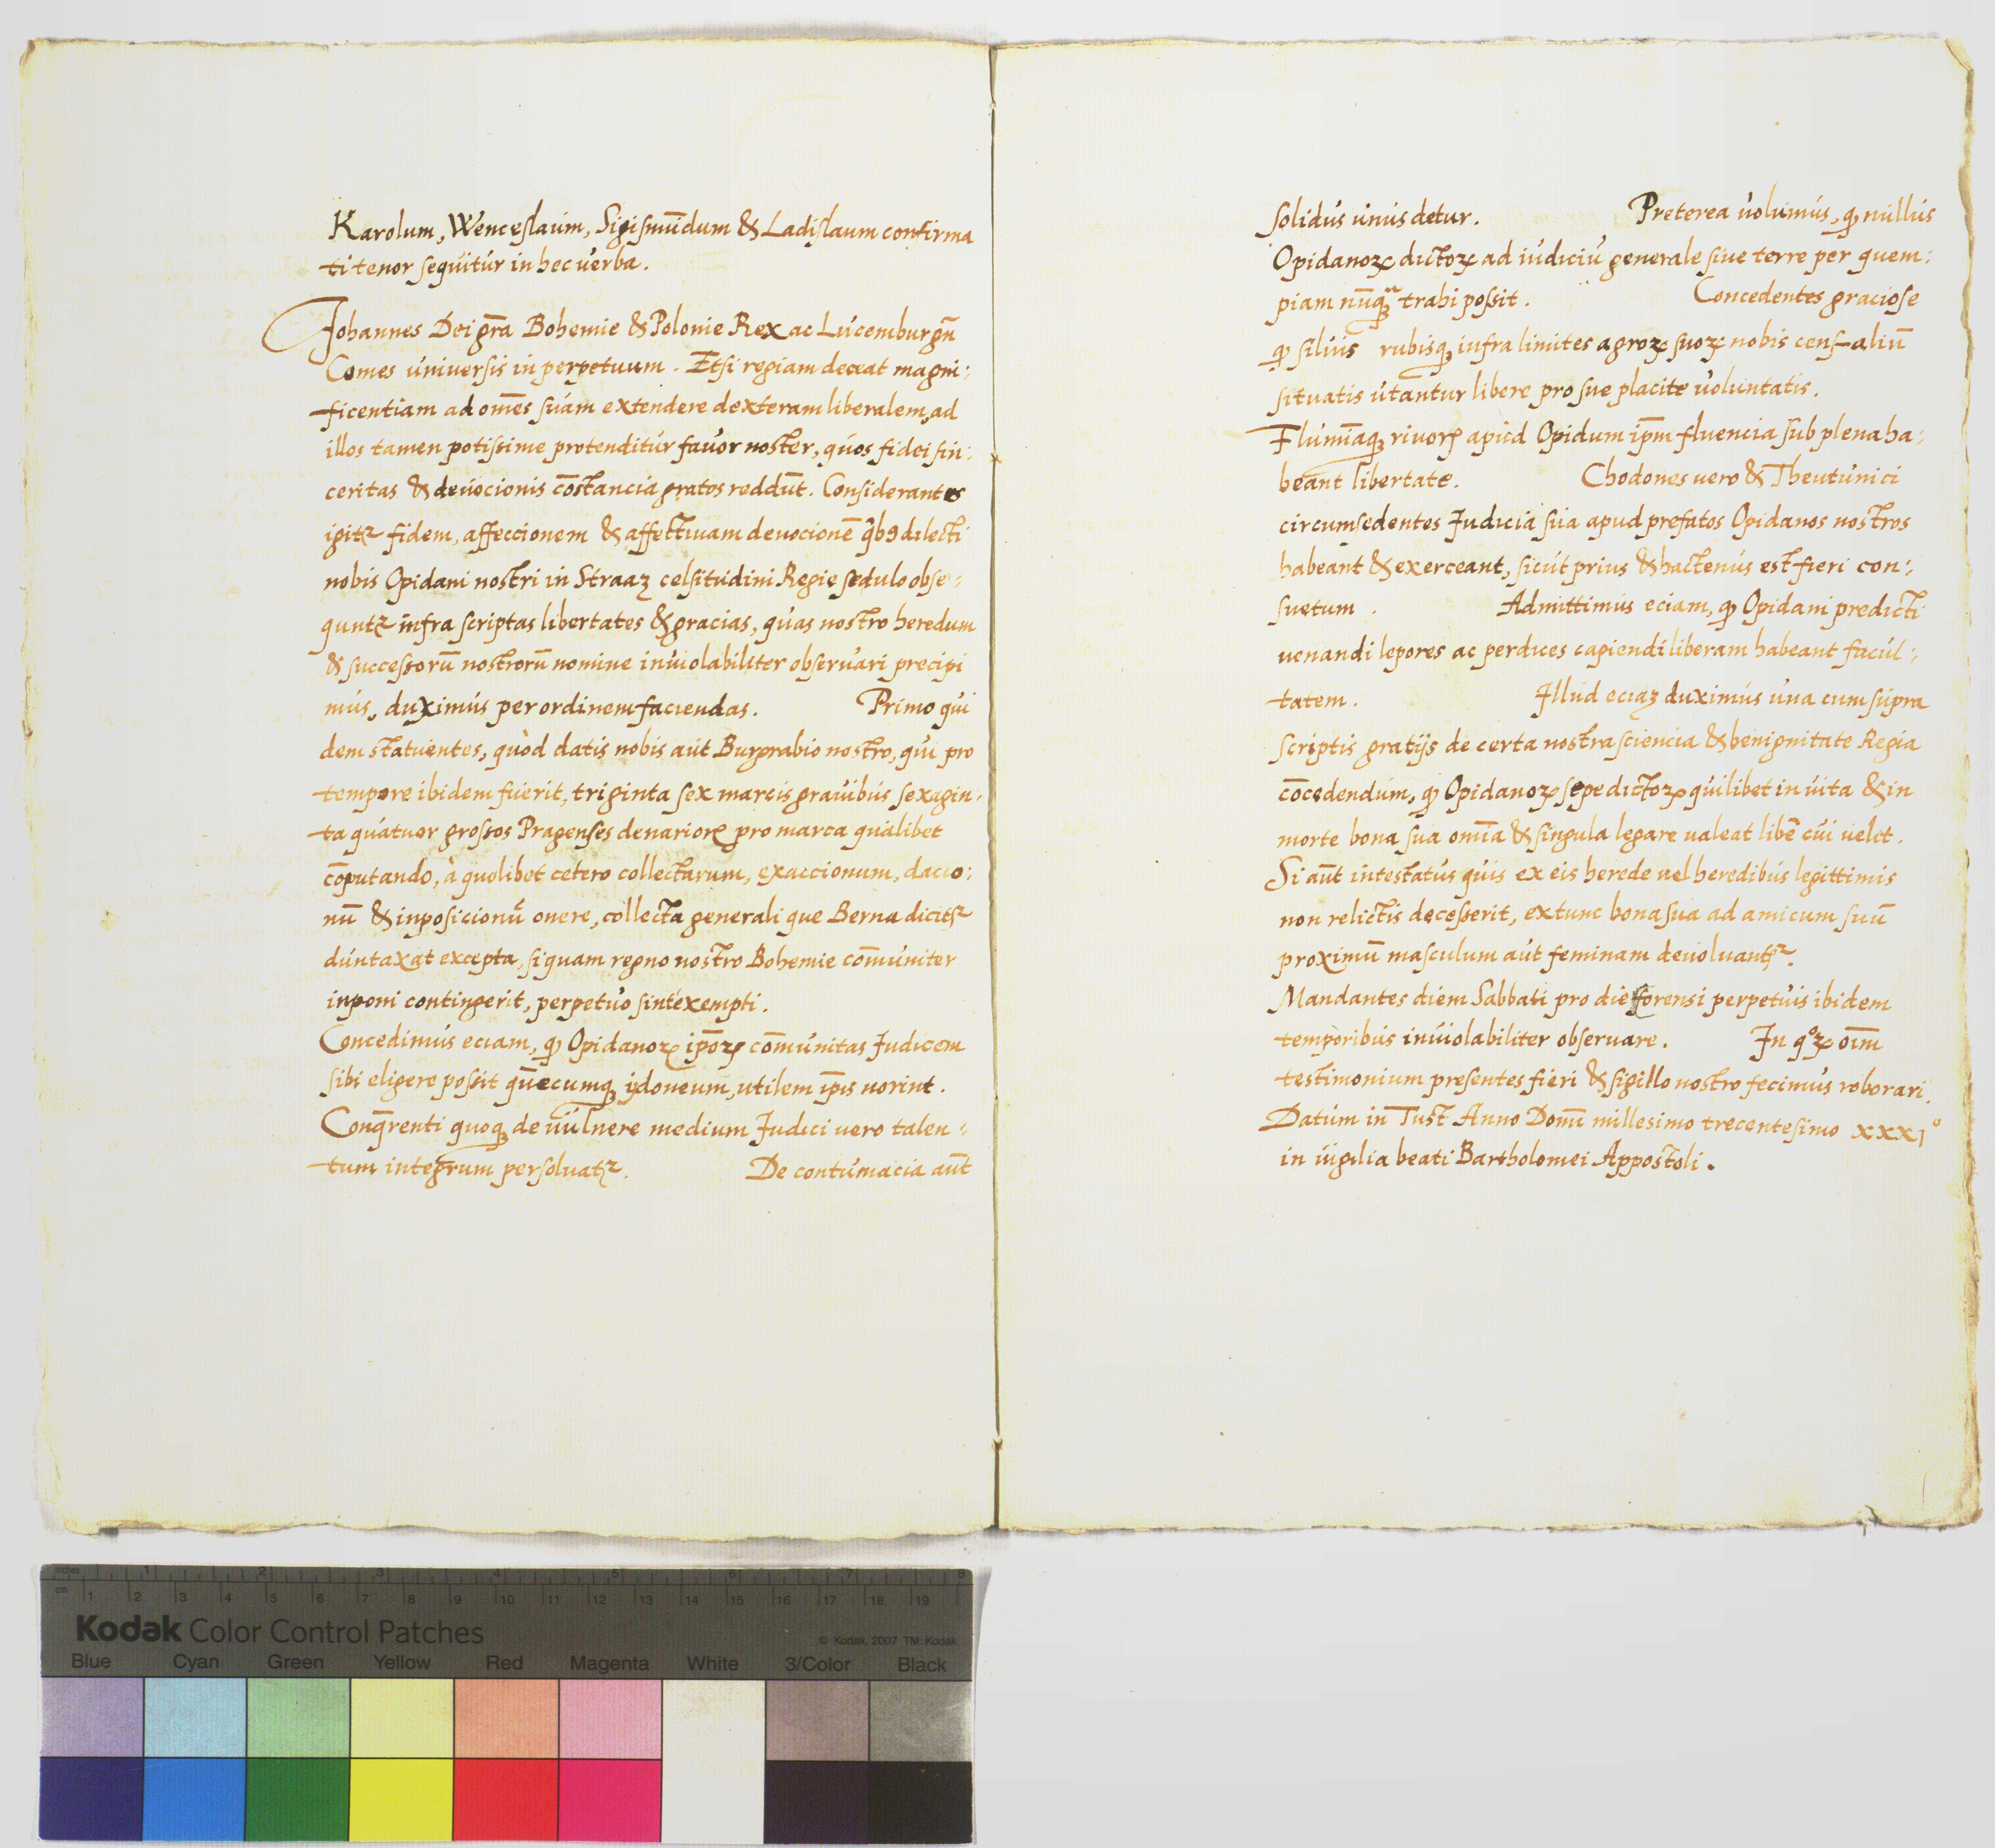 Karolum, Wenceslaum, Sigismūdum & Ladislaum confirma
ti tenor sequitur in hec verba.
Johannes Dei gr̄a Bohemie & Polonie Rex ac Lucemburgn̄
Comes universis in perpetuum. Etsi regiam deceat magni:
ficentiam ad om̄es suam extendere dexteram liberalem, ad
illos tamen potissime protenditur favor noster, quos fidei sin:
ceritas & devocionis cōstancia gratos reddūt. Considerantes
igitꝛ fidem, affeccionem & affectiuam deuocionē qͥbꝯ dilecti
nobis Opidani nostri in Straaz celsitudini Regie sedulo obse:
quntꝛ infra scriptas libertates & gracias, quas nostro heredum
& successorū nostrorū nomine inviolabiliter observari precipi
mus, duximus per ordinem faciendas. Primo qui
dem statuentes, quòd datis nobis aut Burgrabio nostro, qui pro
tempore ibidem fuerit, triginta sex marcis gravibus sexagin:
ta quatuor grossos Pragenses denarioꝝ pro marca qualibet
cōputando, à quolibet cetero collectarum, exaccionum, dacio:
nū & inposicionū onere, collecta generali que Berna dicitꝛ
duntaxat excepta, si quam regno nostro Bohemie cōmuniter
inponi contingerit, perpetuo sint exempti.
Concedimus eciam, ꝙ Opidanoꝝ ip̄oꝝ cōmunitas Judicem
sibi eligere possit qūecumqꝫ ydoneum, utilem ip̄is norint.
Conq̄renti quoqꝫ de vulnere medium Judici uero talen:
tum integrum persoluatꝛ. De contumacia aūt
solidus unus detur. Preterea uolumus, ꝙ nullus
Opidanoꝝ dictoꝝ ad iudiciū generale siue terre per quem:
piam nūqꝫᵃ trahi possit. Concedentes graciose
ꝙ siluis rubisqꝫ infra limites agroꝝ suoꝝ nobis censualiū
situatis utantur libere pro sue placite voluntatis.
Flumīaqꝫ rivoꝝ apud Opidum ip̄m fluencia sub plena ha:
beant libertate. Chodones uero & Theutunici
circumsedentes Judicia sua apud prefatos Opidanos nostros
habeant & exerceant, sicut prius & hactenus est fieri con:
suetum. Admittimus eciam, ꝙ Opidani predicti
uenandi lepores ac perdices capiendi liberam habeant facul:
tatem. Illud eciaꝫ duximus una cum supra
scriptis gratijs de certa nostra sciencia & benignitate Regia
cōcedendum, ꝙ Opidanoꝝ sepedictoꝝ quilibet in uita & in
morte bona sua om̄ia & singula legare ualeat libē cui uelit.
Si aūt intestatus quis ex eis herede uel heredibus legittimis
non relictis decesserit, extunc bona sua ad amicum suū
proximū masculum aut feminam deuoluantꝛ.
Mandantes diem Sabbati pro die forensi perpetuis ibidem
temporibus inuiolabiliter obseruare. In qͦꝝ oīm
testimonium presentes fieri & sigillo nostro fecimus roborari.
Datum in Tust Anno Domī millesimo trecentesimo xxxjͦ
in vigilia beati Bartholomei Appostoli.
inches 1 2 3 4 5 6 7 8
cm 1 2 3 4 5 6 7 8 9 10 11 12 13 14 15 16 17 18 19
Kodak Color Control Patches
© Kodak, 2007 TM: Kodak
Blue Cyan Green Yellow Red Magenta White 3/Color Black